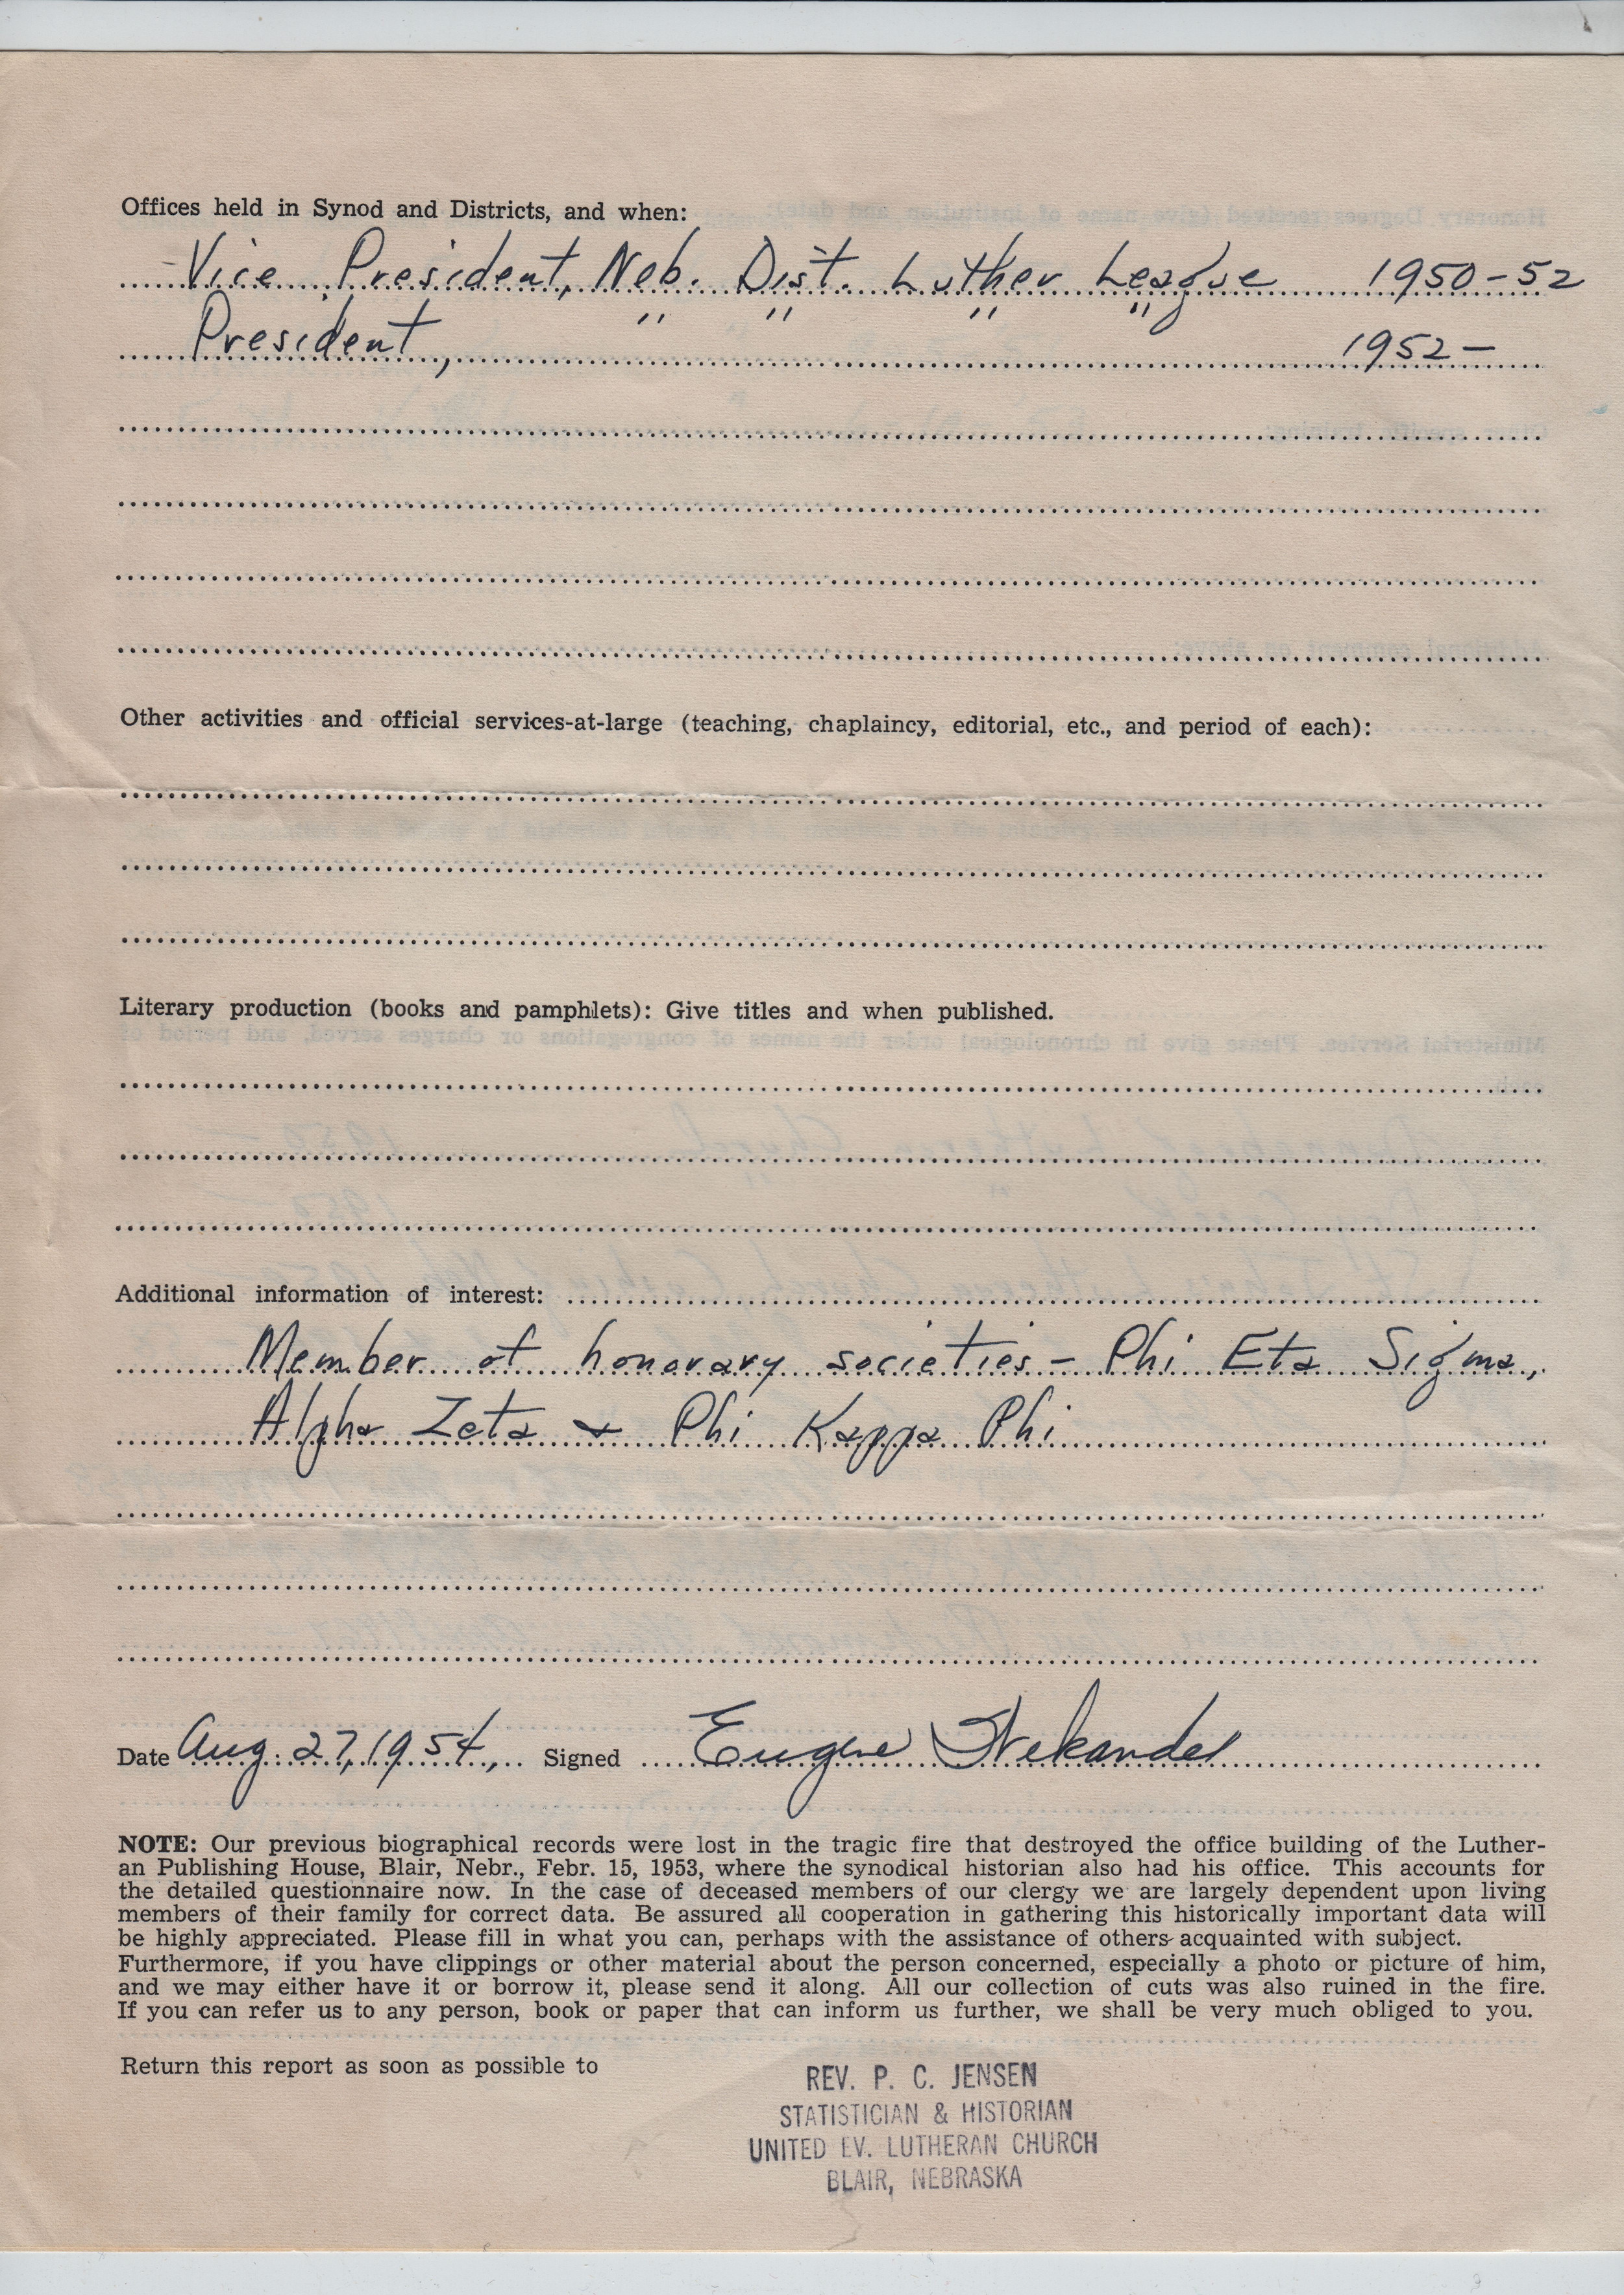 Offices held in Synod and Districts, and when:
Vice President, Neb. Dist. Luther League 1950-52
President, " " " " 1952-
Other activities and official services-at-large (teaching, chaplaincy, editorial, etc., and period of each):
Literary production (books and pamphlets): Give titles and when published.
Additional information of interest:
Member of honorary societies - Phi Eta Sigma,
Alpha Zeta & Phi Kappa Phi
Date Aug. 27, 1954, Signed Eugene
NOTE: Our previous biographical records were lost in the tragic fire that destroyed the office building of the Luther-
an Publishing House, Blair, Nebr., Febr. 15, 1953, where the synodical historian also had his office. This accounts for
the detailed questionnaire now. In the case of deceased members of our clergy we are largely dependent upon living
members of their family for correct data. Be assured all cooperation in gathering this historically important data will
be highly appreciated. Please fill in what you can, perhaps with the assistance of others acquainted with subject.
Furthermore, if you have clippings or other material about the person concerned, especially a photo or picture of him,
and we may either have it or borrow it, please send it along. All our collection of cuts was also ruined in the fire.
If you can refer us to any person, book or paper that can inform us further, we shall be very much obliged to you.
Return this report as soon as possible to
REV. P. C. JENSEN
STATISTICIAN & HISTORIAN
UNITED EV. LUTHERAN CHURCH
BLAIR, NEBRASKA